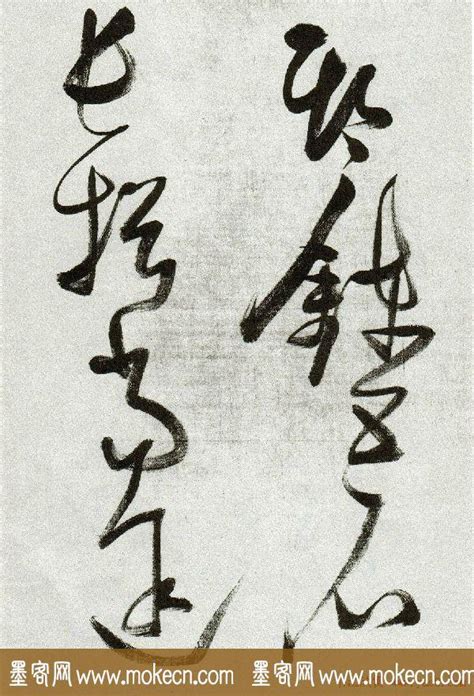 鍊五石
長揖當
墨客网 www.mokecn.com 墨客网 www.mokecn.com